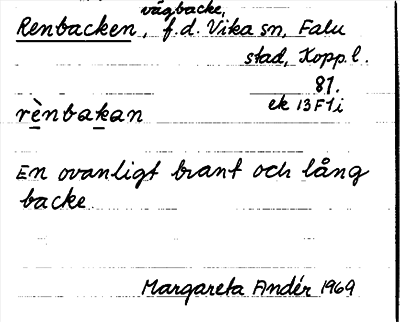 vägbacke,
Renbacken, f.d. Vika sn, Falu
stad, Kopp.l.
81.
ek 13F1i
rènbakan
En ovanligt brant och lång
backe
Margareta Andér 1969